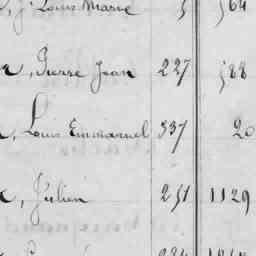 , J. Louis Marie 564
, Pierre Jean 227 588
, Louis Emmanuel 337 20
, Julien 251 1129